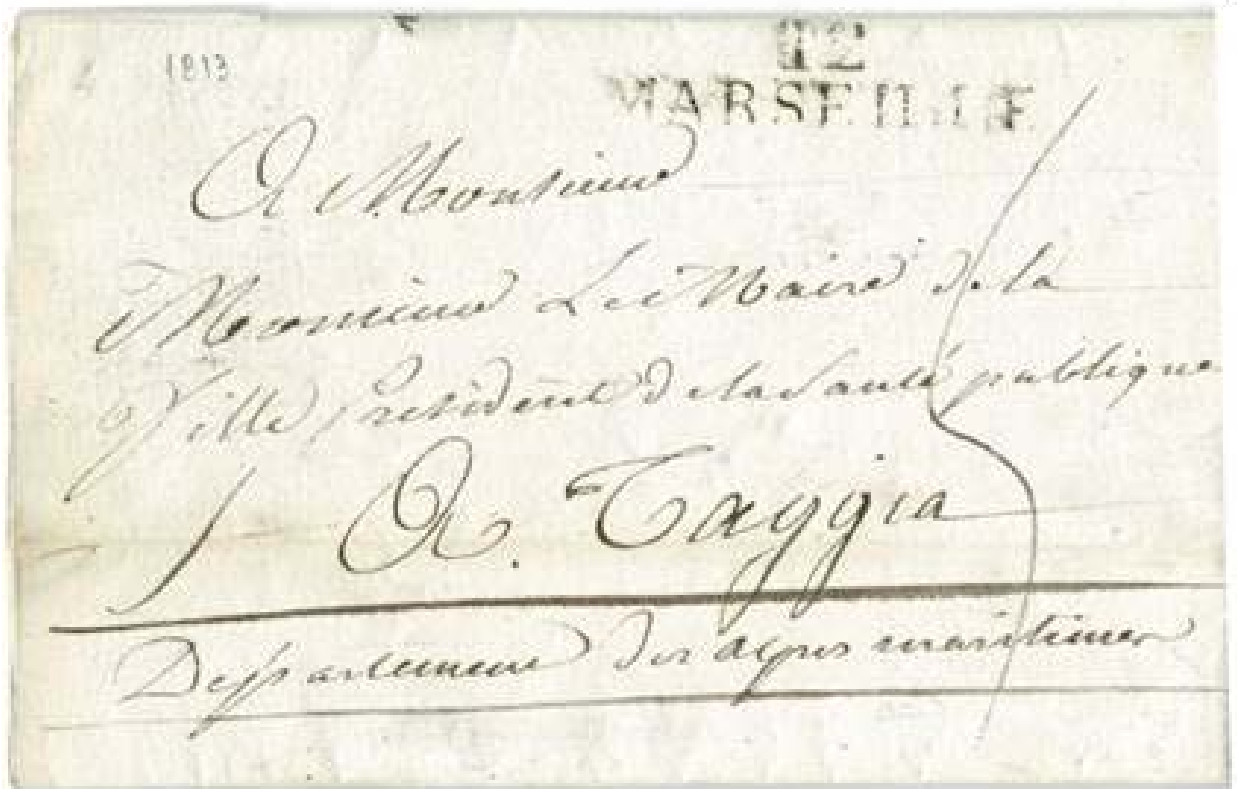 1813
12
MARSEILLE
A Monsieur
Monsieur Le Maire de la
Ville président de la Santé publique
A. Taggia
Departement des alpes maritimes